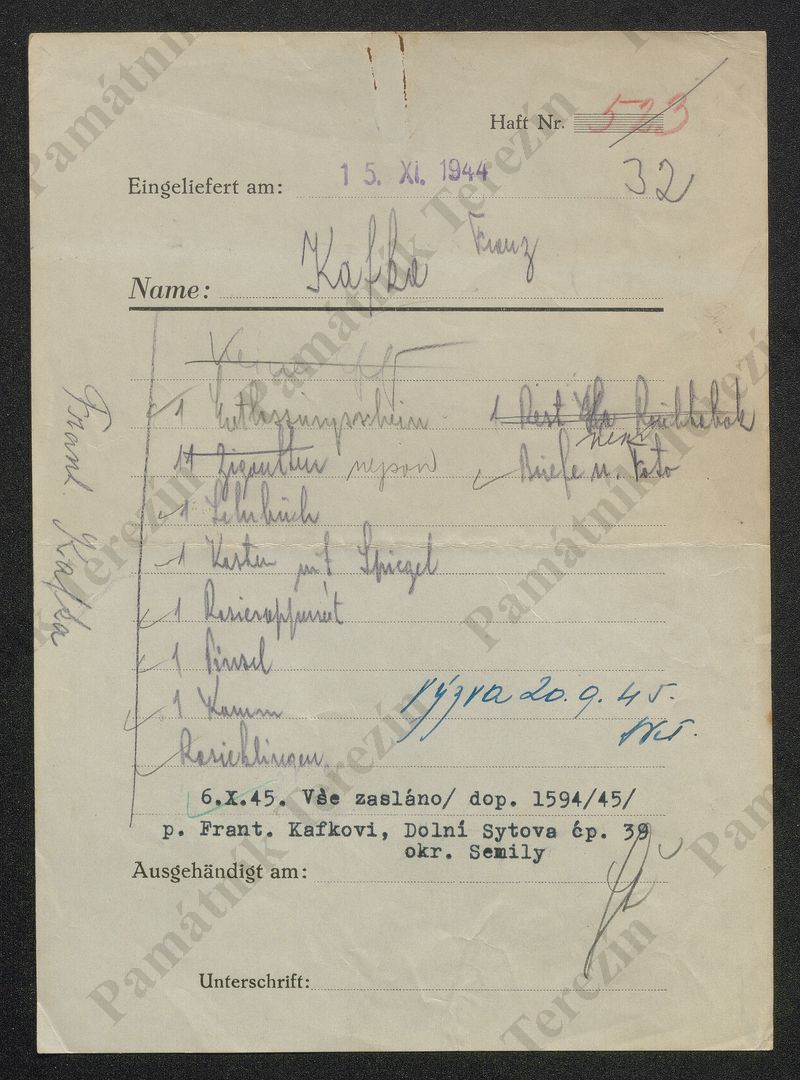 Haft Nr. 523
Eingeliefert am: 15. XI. 1944 32
Name: Kafka Franz
1 Entlassungsschein 1 Rest Rauchtabak
11 Zigaretten Briefe u. Foto
1 Lehrbuch
1 Kasten mit Spiegel
1 Rasierapparat
1 Pinsel
1 Kamm
Rasierklingen
Frant. Kafka
Výzva 20.9.45.
6.X.45. Vše zasláno/ dop. 1594/45/
p. Frant. Kafkovi, Dolní Sytova čp. 39
okr. Semily
Ausgehändigt am:
Unterschrift:
Památník Terezín